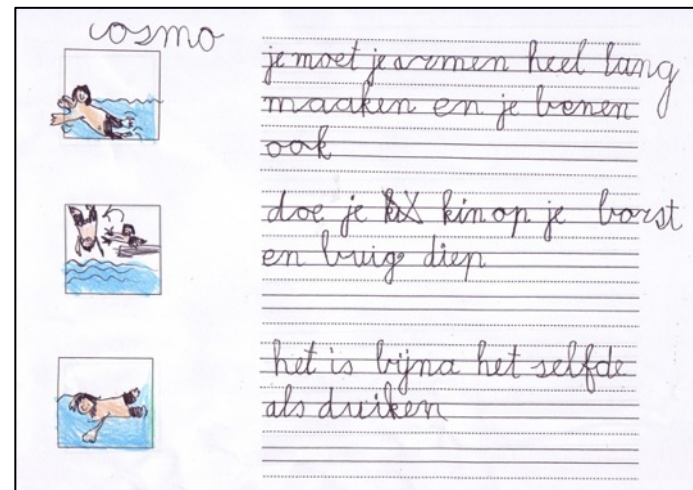 cosmo
je moet je armen heel lang
maaken en je benen
ook
doe je kin op je borst
en buig diep
het is bijna het selfde
als duiken